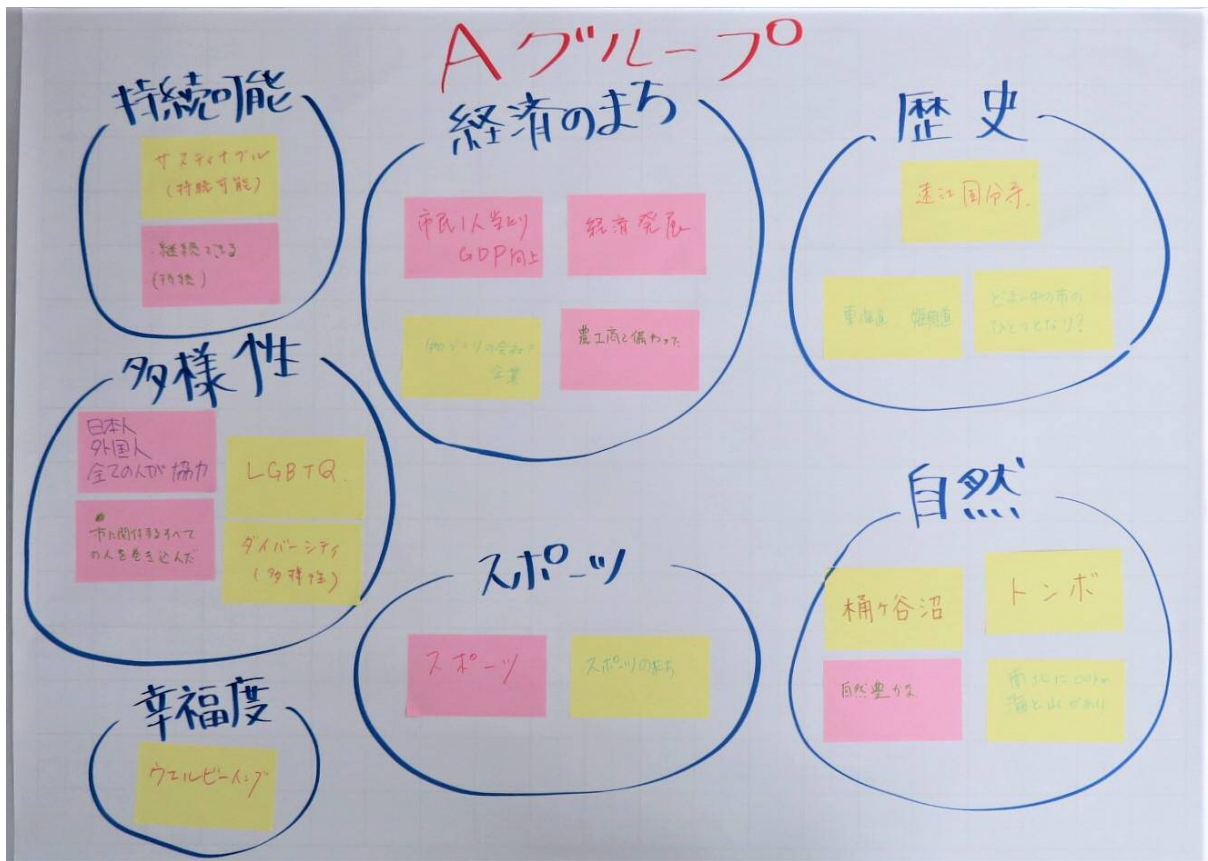 Aグループ
持続可能
サスティナブル
(持続可能)
・継続できる
(持続)
経済のまち
市民1人当たり
GDP向上
経済発展
企業
農工商と備わった
歴史
遠江国分寺
東海道 姫街道
ひとつとなり?
多様性
日本人
外国人
全ての人が協力
市に関係するすべて
の人を巻き込んだ
LGBTQ
ダイバーシティ
(多様性)
スポーツ
スポーツ
スポーツのまち
自然
桶ヶ谷沼
トンボ
自然豊かな
南北に
海と山があり
幸福度
ウエルビーイング